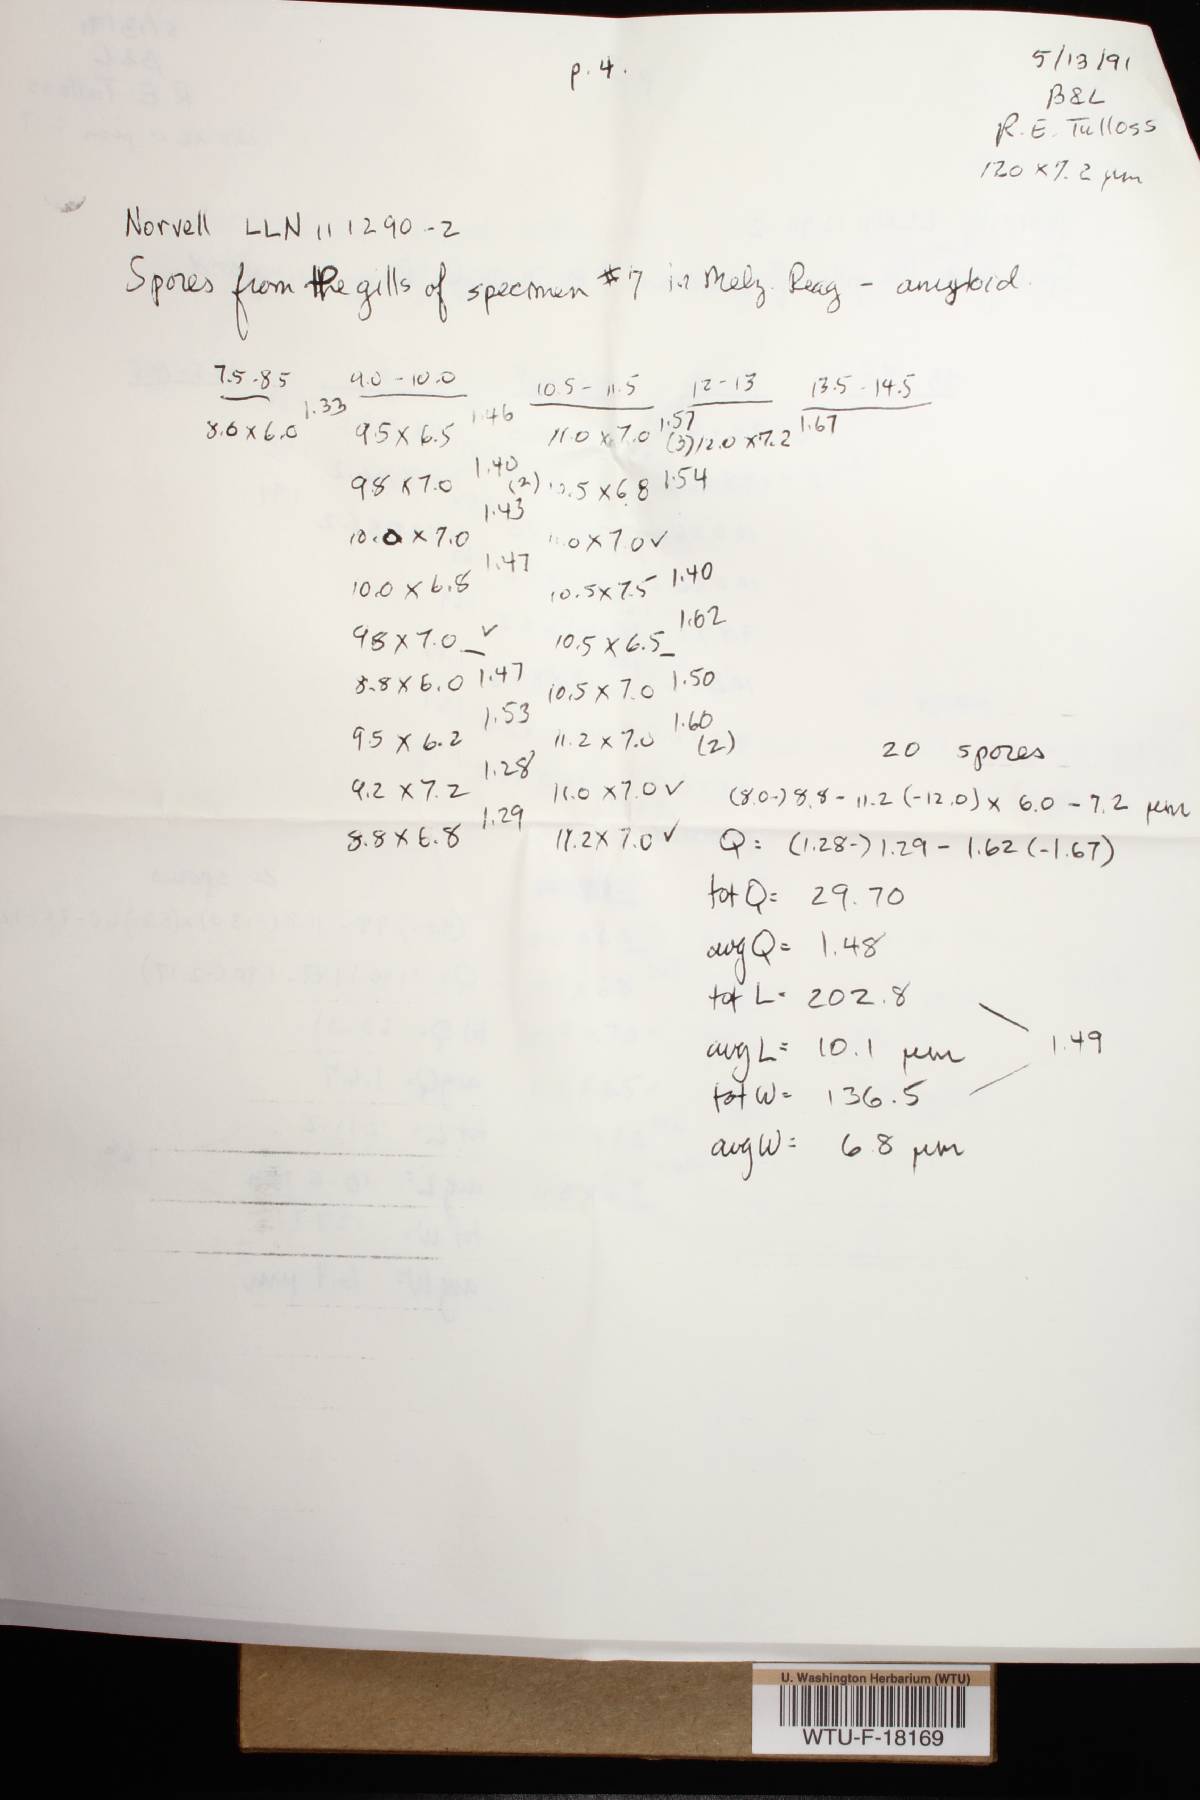 p. 4.
5/13/91
B&L
R. E. Tulloss
120 x 7.2 µm
Norvell LLN 111290-2
Spores from the gills of specimen #17 in Melz. Reag - amyloid.
7.5-8.5 9.0-10.0 10.5-11.5 12-13 13.5-14.5
8.0 x 6.0 1.33 9.5 x 6.5 1.46 11.0 x 7.0 1.57 (3) 12.0 x 7.2 1.67
9.8 x 7.0 1.40 (2) 10.5 x 6.8 1.54
10.0 x 7.0 1.43 11.0 x 7.0 ✓
10.0 x 6.8 1.47 10.5 x 7.5 1.40
9.8 x 7.0 ✓ 10.5 x 6.5 1.62
8.8 x 6.0 1.47 10.5 x 7.0 1.50
9.5 x 6.2 1.53 11.2 x 7.0 1.60 (2)
9.2 x 7.2 1.28 11.0 x 7.0 ✓
8.8 x 6.8 1.29 11.2 x 7.0 ✓
20 spores
(8.0-) 8.8 - 11.2 (-12.0) x 6.0 - 7.2 µm
Q = (1.28-) 1.29 - 1.62 (-1.67)
tot Q = 29.70
avg Q = 1.48
tot L = 202.8
avg L = 10.1 µm 1.49
tot W = 136.5
avg W = 6.8 µm
U. Washington Herbarium (WTU)
WTU-F-18169